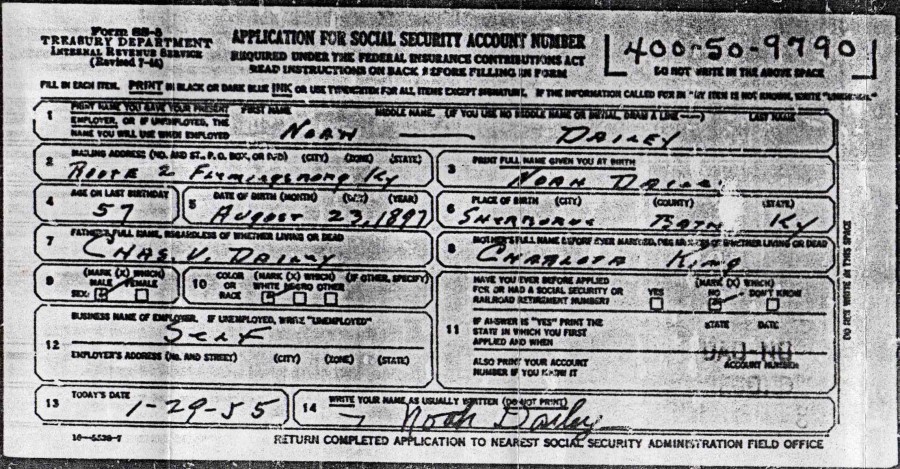 Form SS-5
TREASURY DEPARTMENT
INTERNAL REVENUE SERVICE
(Revised 7-54)
APPLICATION FOR SOCIAL SECURITY ACCOUNT NUMBER
REQUIRED UNDER THE FEDERAL INSURANCE CONTRIBUTIONS ACT
READ INSTRUCTIONS ON BACK BEFORE FILLING IN FORM
400-50-9790
DO NOT WRITE IN THE ABOVE SPACE
FILL IN EACH ITEM. PRINT IN BLACK OR DARK BLUE INK OR USE TYPEWRITER FOR ALL ITEMS EXCEPT SIGNATURE. IF THE INFORMATION CALLED FOR IN ANY ITEM IS NOT KNOWN, WRITE "UNKNOWN."
1 PRINT NAME YOU GAVE YOUR PRESENT EMPLOYER, OR IF UNEMPLOYED, THE NAME YOU WILL USE WHEN EMPLOYED
FIRST NAME MIDDLE NAME. (IF YOU USE NO MIDDLE NAME OR INITIAL, DRAW A LINE —) LAST NAME
NOAH — DAILEY
2 MAILING ADDRESS (NO. AND ST., P. O. BOX, OR RFD) (CITY) (ZONE) (STATE)
ROUTE 2 Flemingsburg KY
3 PRINT FULL NAME GIVEN YOU AT BIRTH
NOAH DAILEY
4 AGE ON LAST BIRTHDAY
57
5 DATE OF BIRTH (MONTH) (DAY) (YEAR)
AUGUST 23, 1897
6 PLACE OF BIRTH (CITY) (COUNTY) (STATE)
SHERBURNE BATH KY
7 FATHER'S FULL NAME, REGARDLESS OF WHETHER LIVING OR DEAD
CHAS. V. DAILEY
8 MOTHER'S FULL NAME BEFORE EVER MARRIED, REGARDLESS OF WHETHER LIVING OR DEAD
CHARLOTA KING
9 SEX: (MARK (X) WHICH)
MALE FEMALE
10 COLOR OR RACE (MARK (X) WHICH) (IF OTHER, SPECIFY)
WHITE NEGRO OTHER
11 HAVE YOU EVER BEFORE APPLIED FOR OR HAD A SOCIAL SECURITY OR RAILROAD RETIREMENT NUMBER?
(MARK (X) WHICH)
YES NO DON'T KNOW
IF ANSWER IS "YES" PRINT THE STATE IN WHICH YOU FIRST APPLIED AND WHEN
STATE DATE
ALSO PRINT YOUR ACCOUNT NUMBER IF YOU KNOW IT
ACCOUNT NUMBER
12 BUSINESS NAME OF EMPLOYER. IF UNEMPLOYED, WRITE "UNEMPLOYED"
SELF
EMPLOYER'S ADDRESS (NO. AND STREET) (CITY) (ZONE) (STATE)
13 TODAY'S DATE
1-29-55
14 WRITE YOUR NAME AS USUALLY WRITTEN (DO NOT PRINT)
Noah Dailey
DO NOT WRITE IN THIS SPACE
RETURN COMPLETED APPLICATION TO NEAREST SOCIAL SECURITY ADMINISTRATION FIELD OFFICE